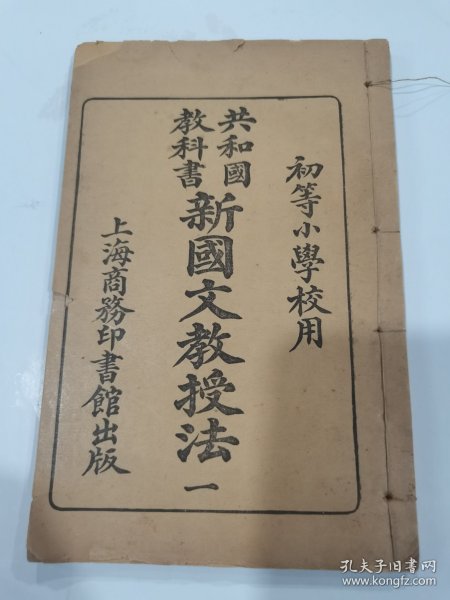 初等小學校用
共和國
教科書
新國文教授法 一
上海商務印書館出版
孔夫子旧书网
www.kongfz.com